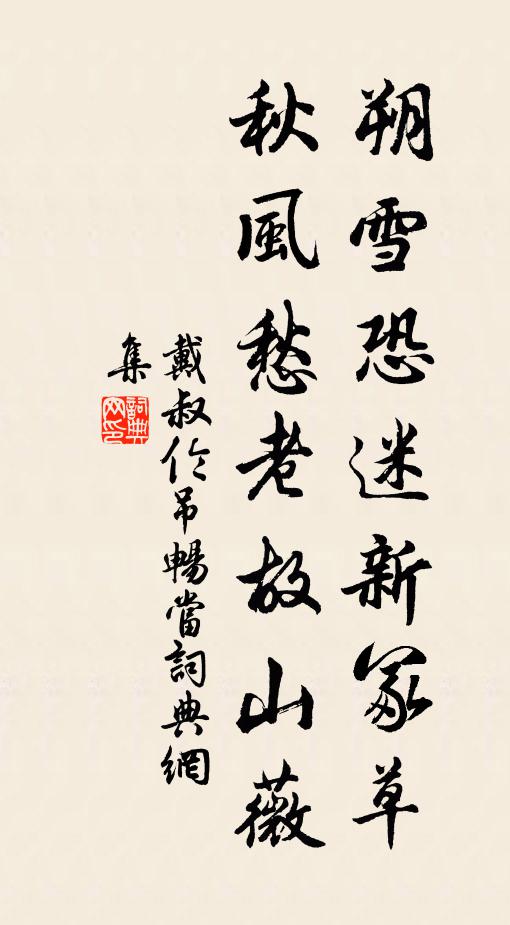 朔雪恐迷新冢草
秋風愁老故山薇
戴叔伦吊暢當詞典網
集
詞典
网印